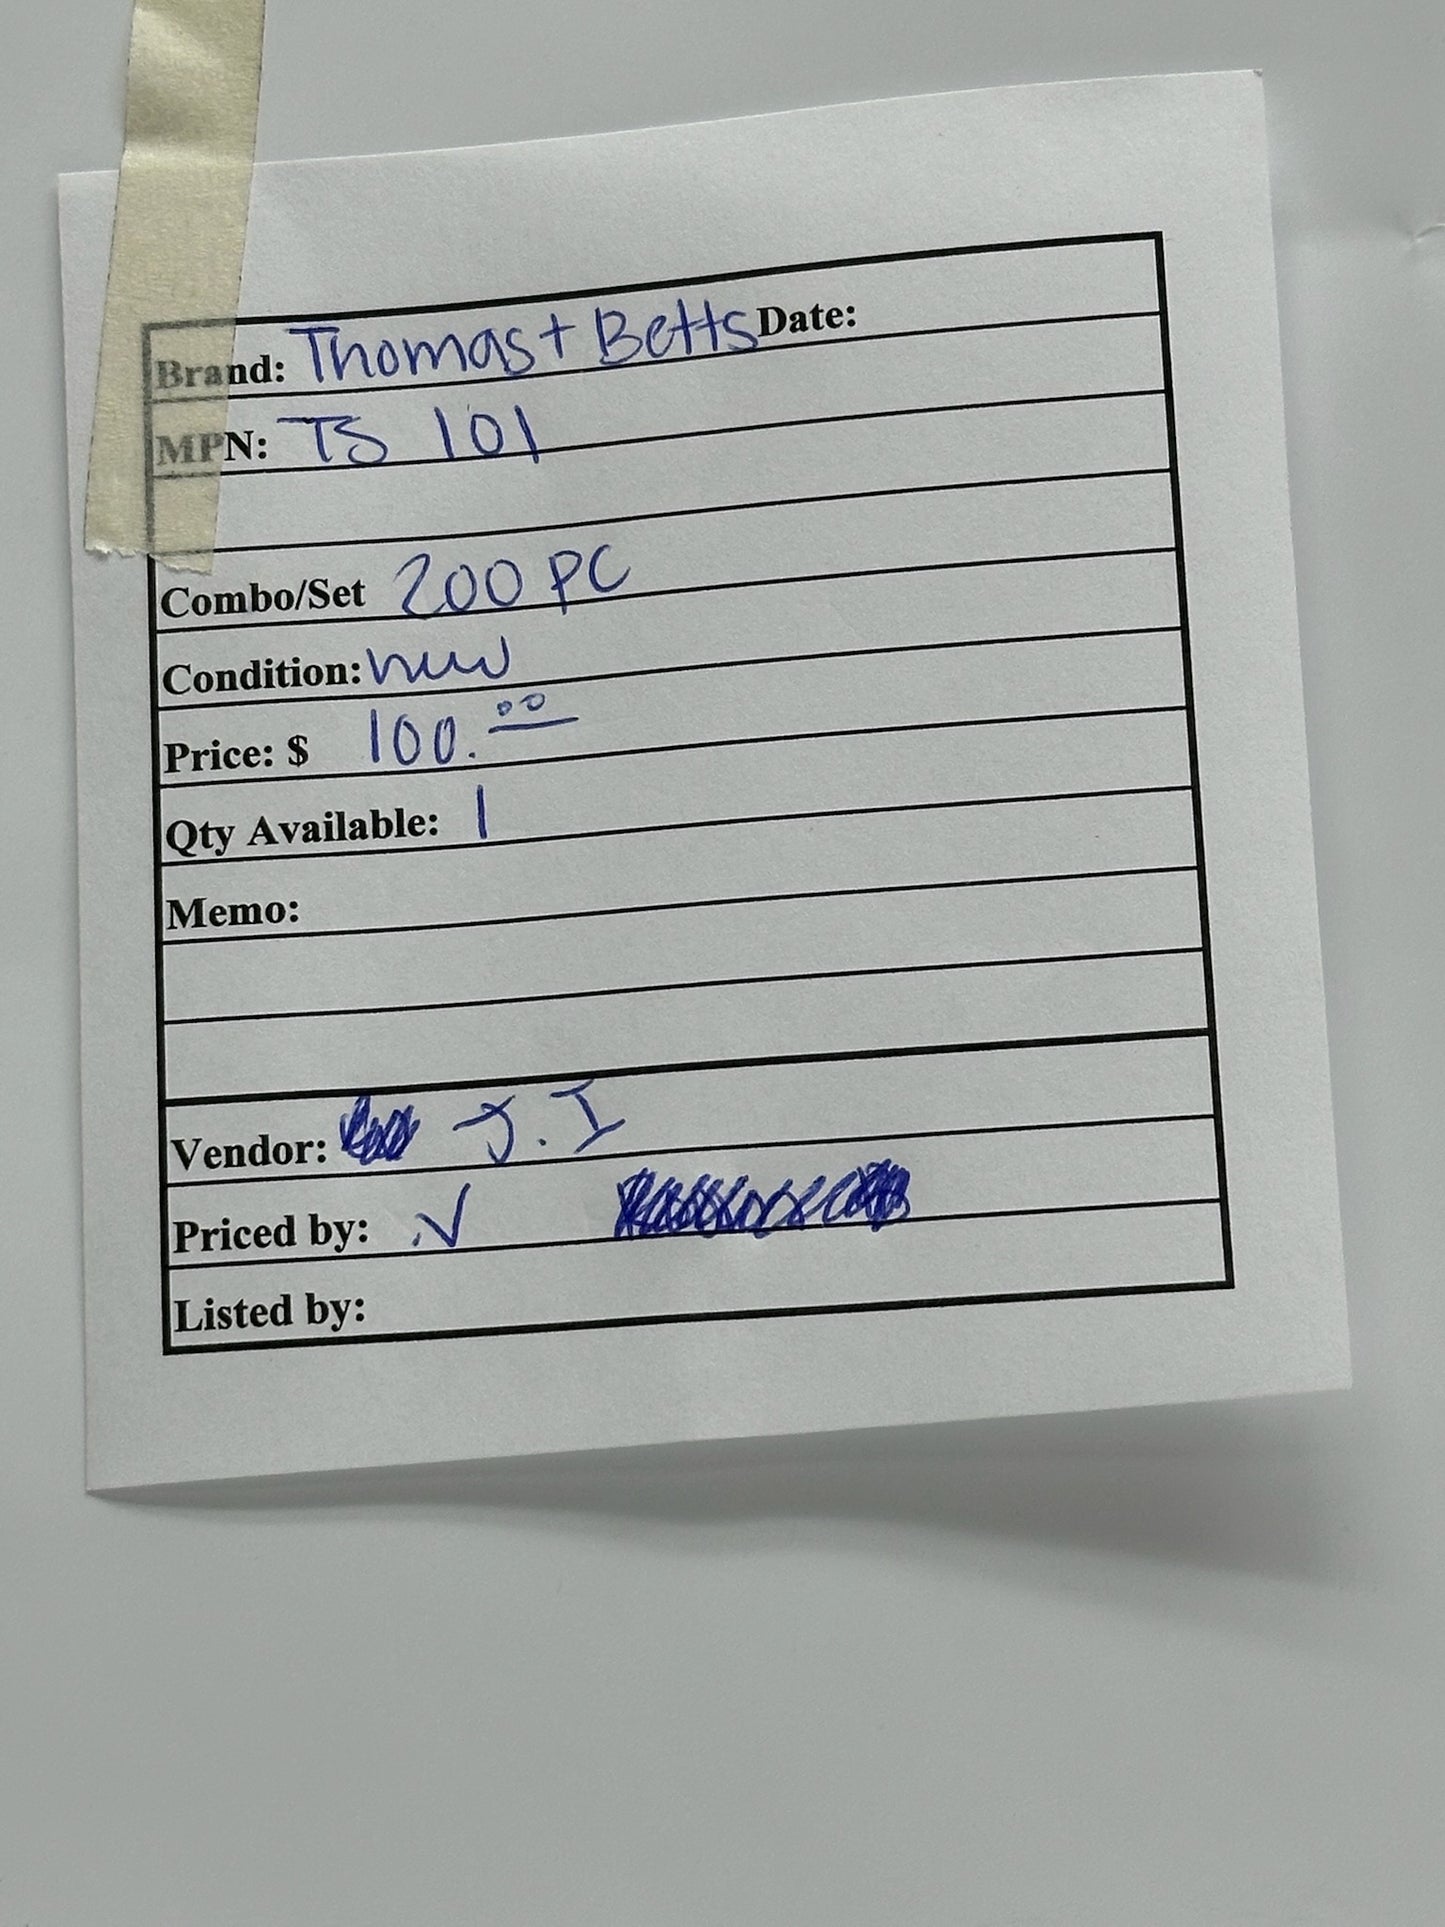 Brand: Thomas + Betts Date:
MPN: TS 101
Combo/Set 200 PC
Condition: new
Price: $ 100.00
Qty Available: 1
Memo:
Vendor: J.I
Priced by: ✓
Listed by: